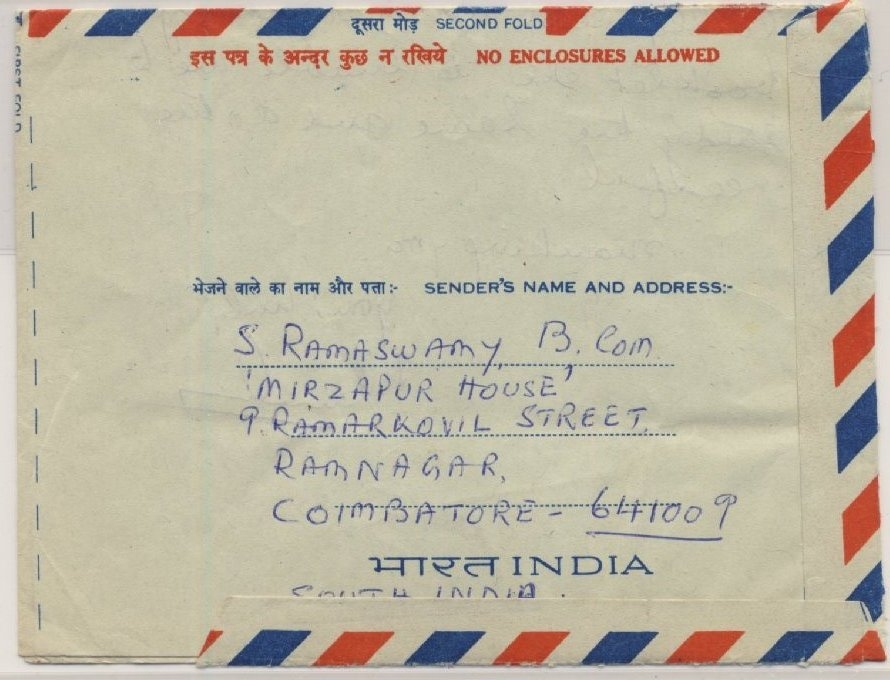 दूसरा मोड़ SECOND FOLD
इस पत्र के अन्दर कुछ न रखिये NO ENCLOSURES ALLOWED
FIRST FOLD
भेजने वाले का नाम और पता:- SENDER'S NAME AND ADDRESS:-
S. RAMASWAMY, B. Com.
'MIRZAPUR HOUSE'
9. RAMARKOVIL STREET.
RAMNAGAR,
COIMBATORE - 641009
भारत INDIA
SOUTH INDIA.